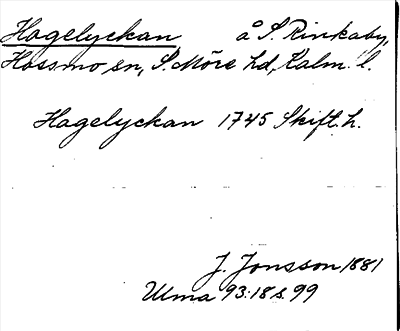 Hagelyckan å S. Rinkaby,
Hossmo sn, S. Möre hd, Kalm. l.
Hagelyckan 1745 Skift. h.
J. Jonsson 1881
Ulma 93:18 s. 99